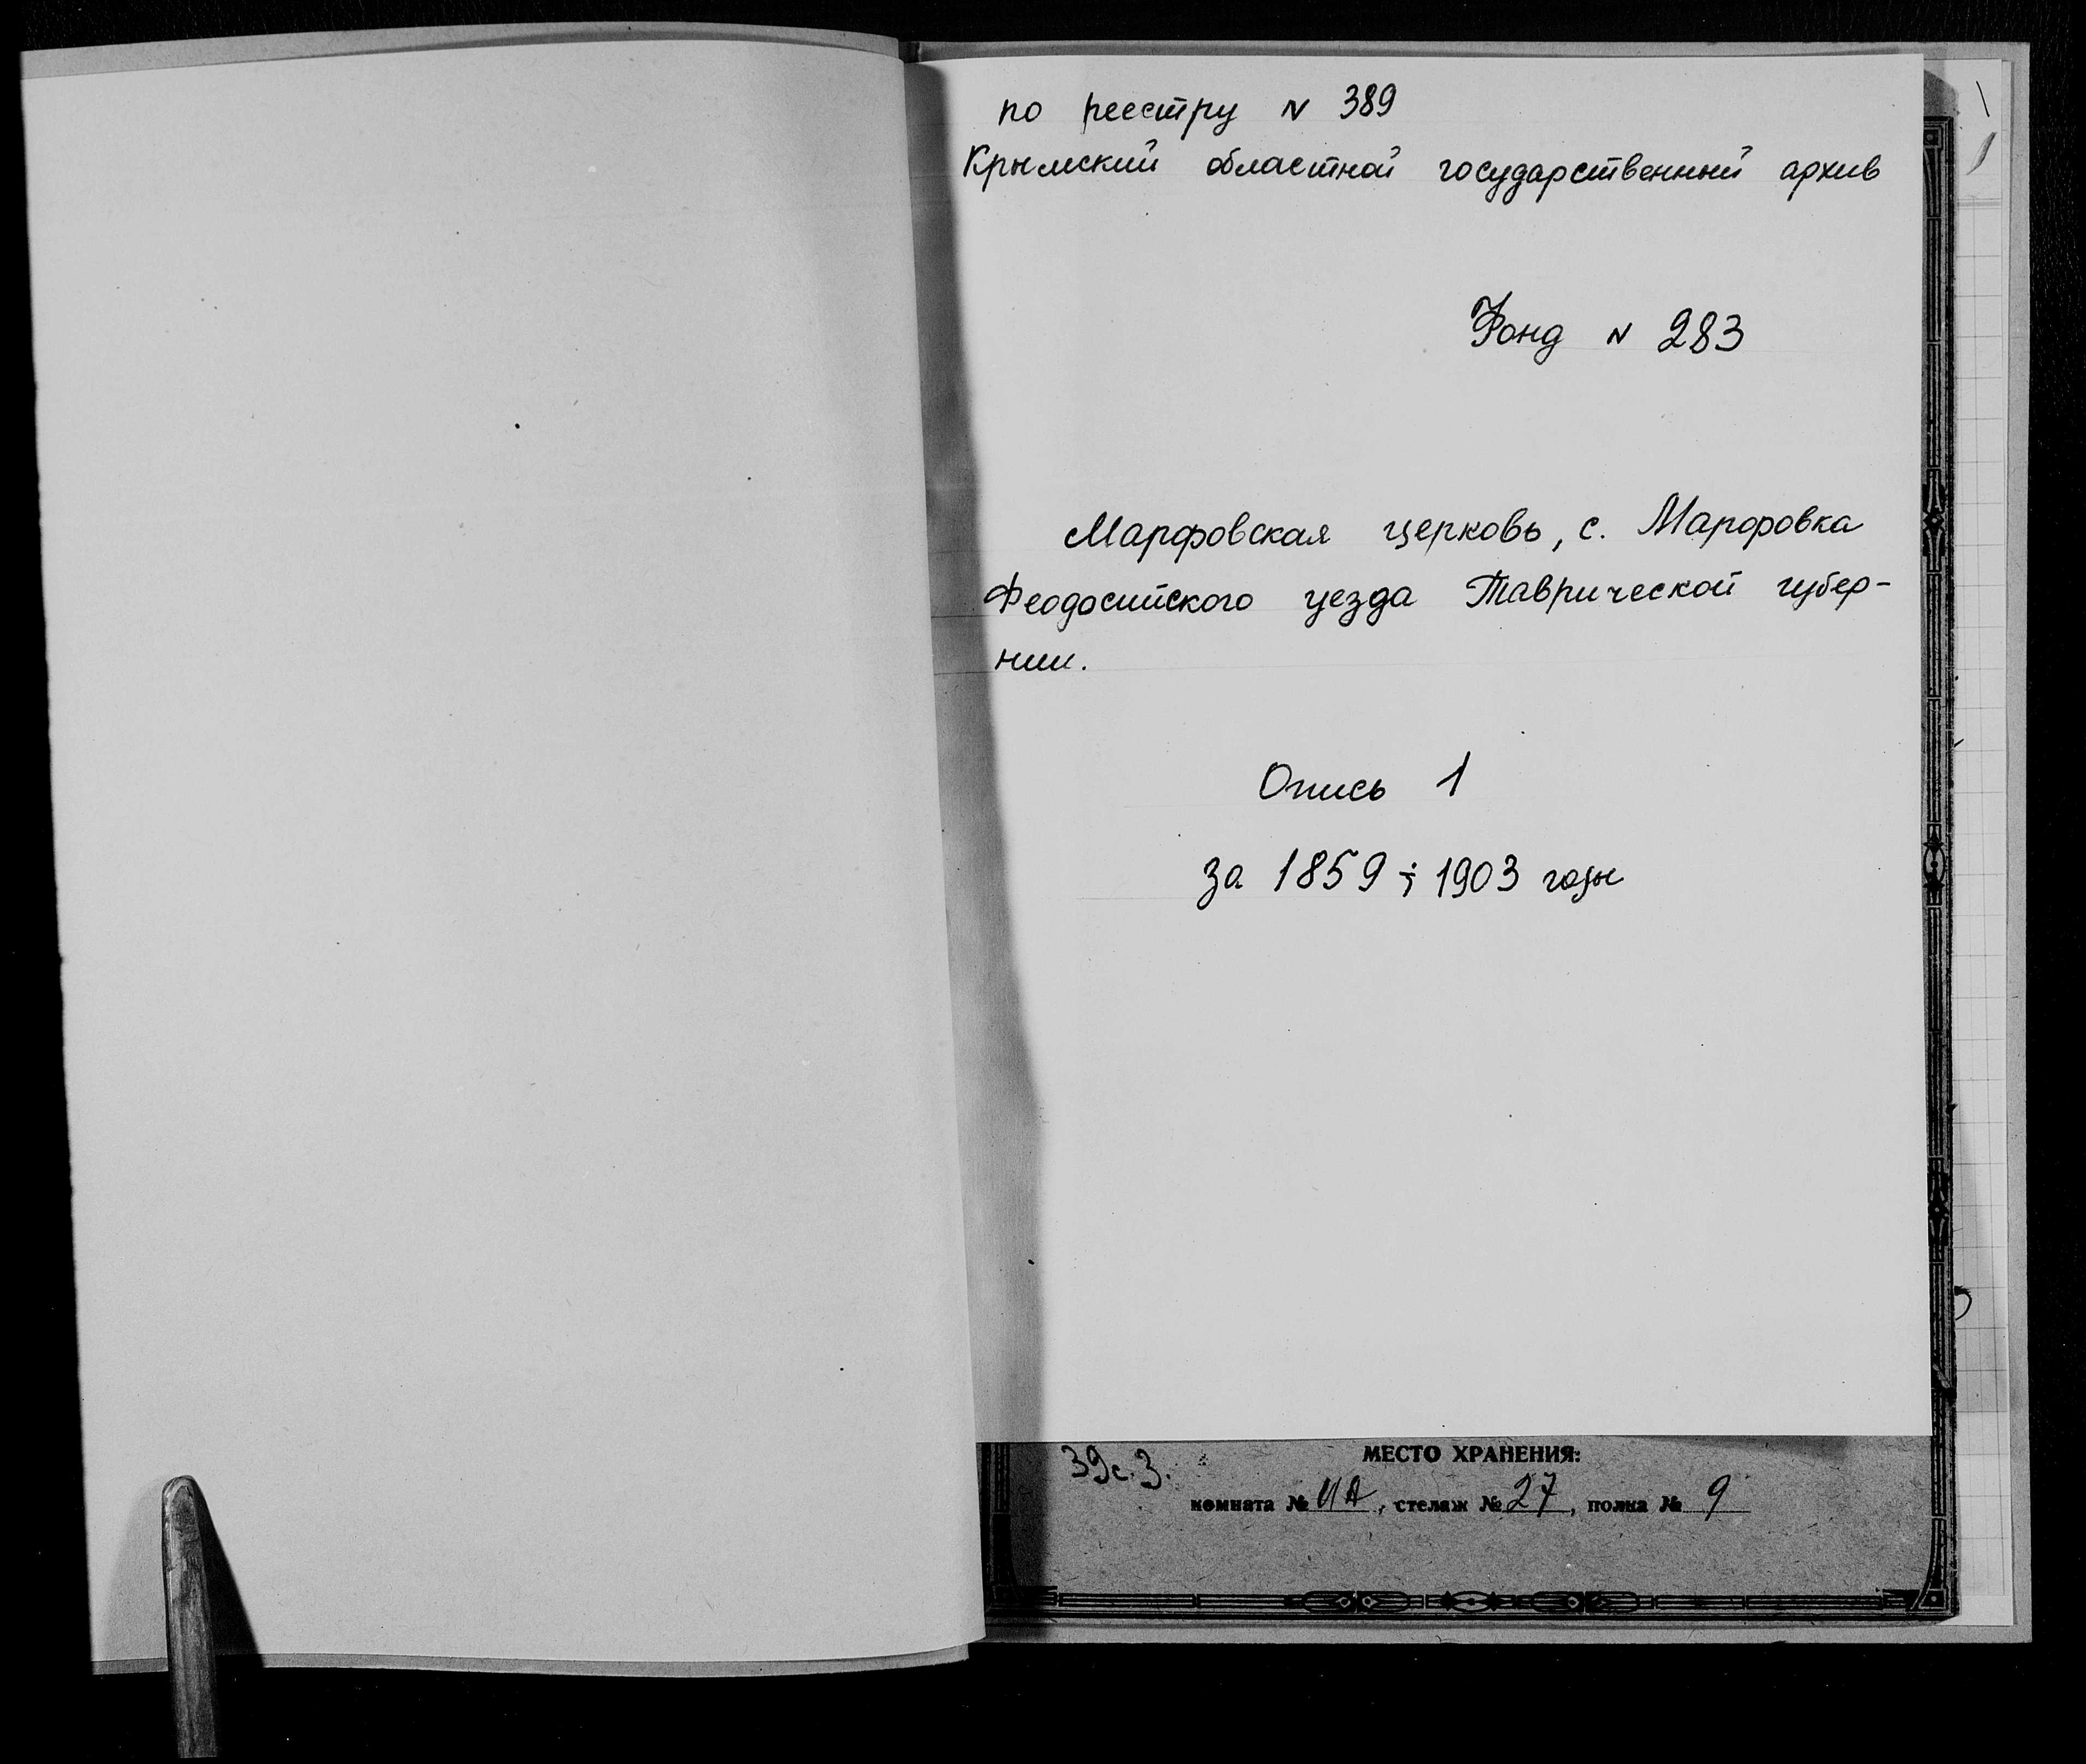 по реестру N 389
Крымский областной государственный архив
Фонд N 283
Марфовская церковь, с. Марфовка
Феодосийского уезда Таврической губер-
нии.
Опись 1
за 1859 ÷ 1903 годы
39с.3.
МЕСТО ХРАНЕНИЯ:
комната № , стелаж № 27, полка № 9